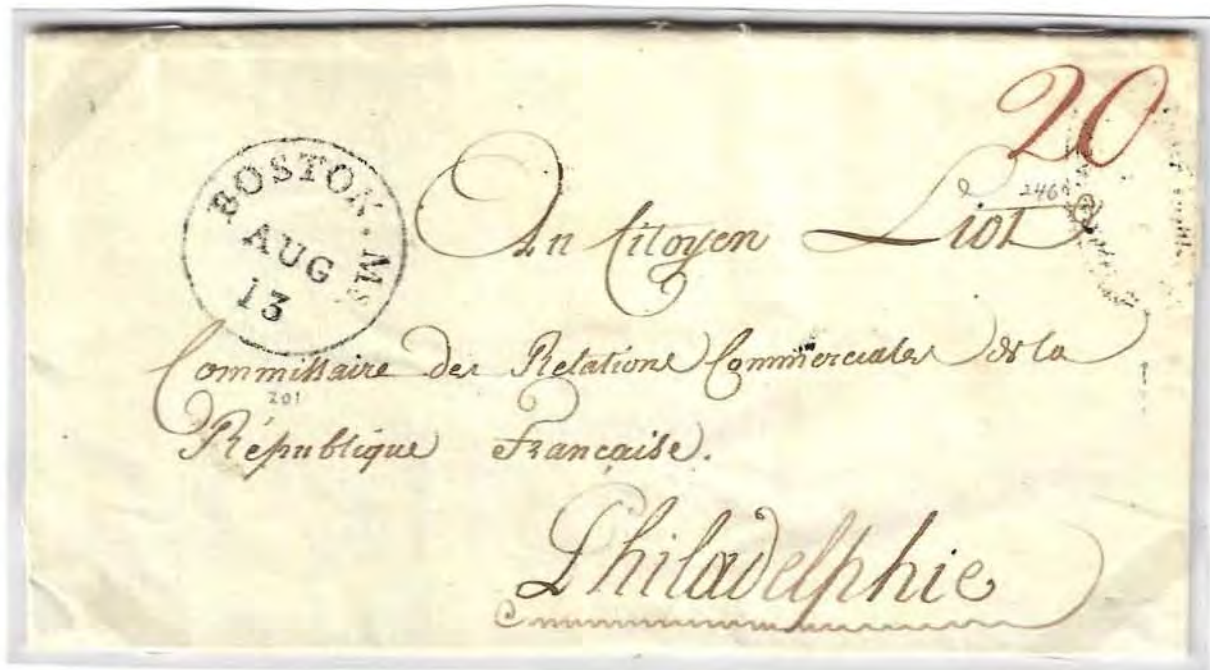 20
BOSTON. Ms
AUG
13
246
Au Citoyen Liot
Commissaire des Relations Commerciales de la
201
République Française.
Philadelphie